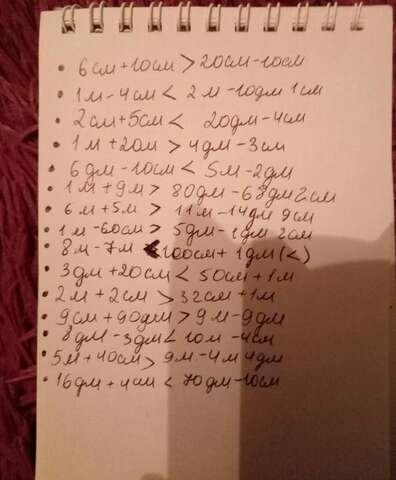 • 6см+10см > 20см-10см
• 1м-4см < 2м-10дм 1см
• 2см+5см < 20дм-4см
• 1м+20м > 4дм-3см
6дм-10см < 5м-2дм
• 1м+9м > 80дм-68дм2см
• 6м+5м > 11м-14дм 9см
• 1м-60см > 5дм-1дм 2см
• 8м-7м < 100см+1дм(<)
• 3дм+20см < 50см+1м
• 2м+2см > 32см+1м
• 9см+90дм > 9м-9дм
• 8дм-3дм < 10м-4см
• 5м+40см > 9м-4м4дм
• 16дм+4см < 70дм-10см